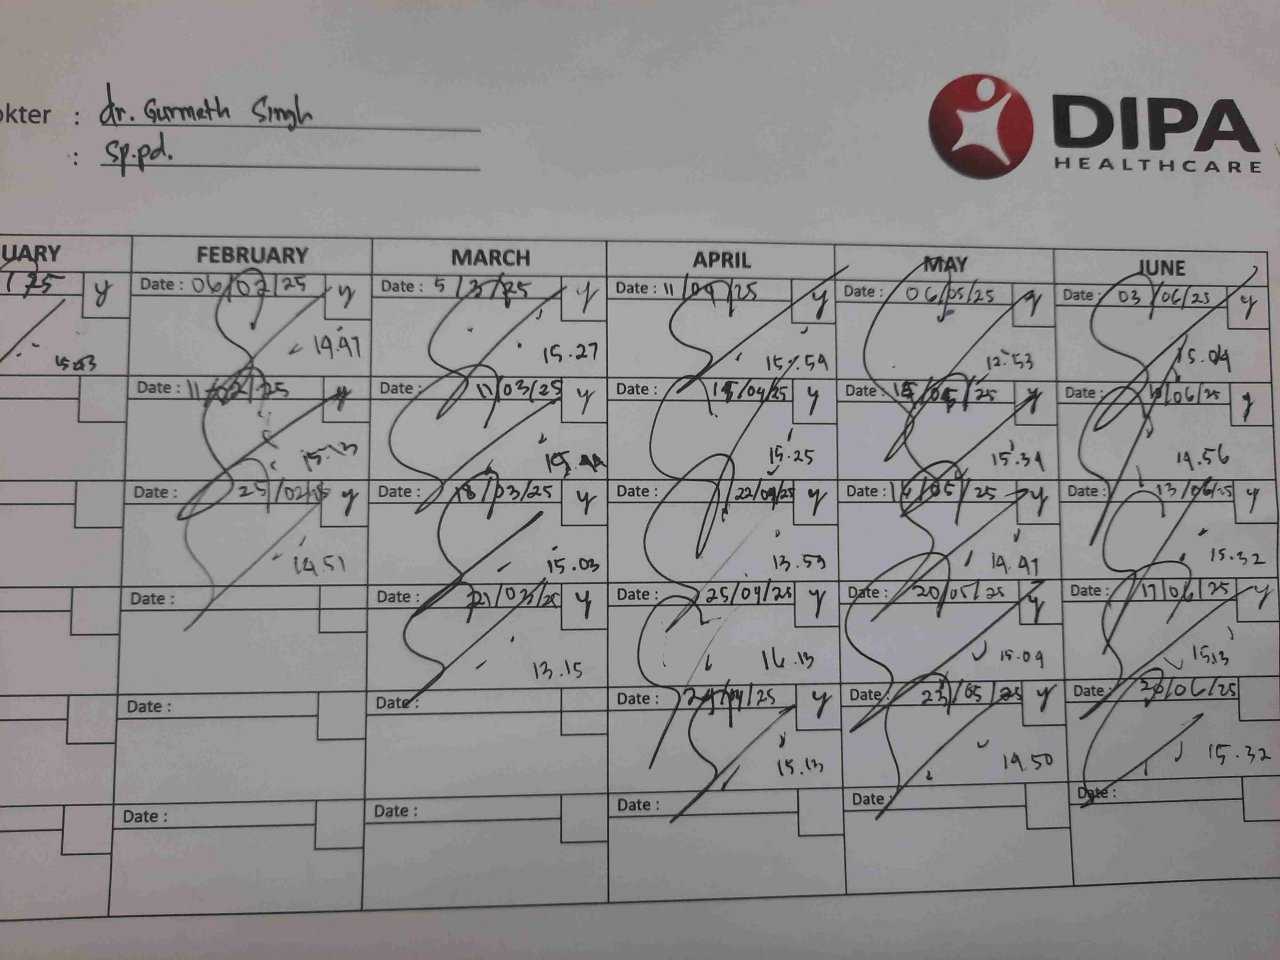 okter : dr. Gurmeth Singh
: Sp.pd.
DIPA
HEALTHCARE
UARY FEBRUARY MARCH APRIL MAY JUNE
75 y Date : 06/02/25 y Date : 5/3/25 y Date : 11/04/25 y Date : 06/05/25 y Date : 03/06/25 y
14.47 15.27 15.59 12.53 15.04
Date : 11/02/25 y Date : 11/03/25 y Date : 15/04/25 y Date : /05/25 y Date : 10/06/25 y
15.13 15.25 15.34 14.56
Date : 25/02/25 y Date : 18/03/25 y Date : 22/04/25 y Date : /05/25 y Date : 13/06/25 y
14.51 15.03 13.59 14.47 15.32
Date : Date : 21/03/25 y Date : 25/04/25 y Date : 20/05/25 y Date : 17/06/25 y
13.15 16.13 15.09 15.13
Date : Date : Date : 29/04/25 y Date : 23/05/25 y Date : 20/06/25
15.13 14.50 15.32
Date : Date : Date : Date : Date :